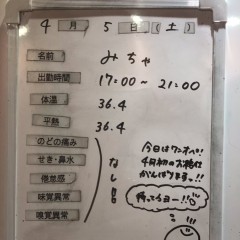 4月 5日(土)
名前 みちゃ
出勤時間 17:00~21:00
体温 36.4
平熱 36.4
のどの痛み
せき・鼻水
倦怠感
味覚異常
嗅覚異常
なし
今日はワンオペ!
4月初のお給仕
がんばりまっ!!
待ってるヨー!!